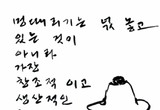 멍때리기는 넋 놓고
있는 것이
아니라
가장
창조적 이고
생산적인